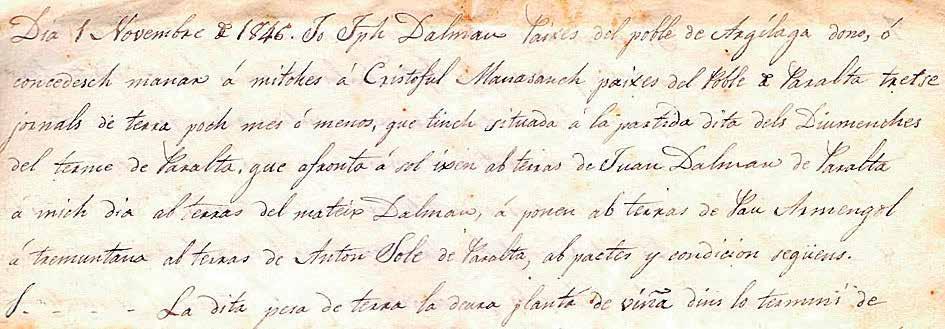 Dia 1 Novembre de 1846. Jo Jph Dalmau Paixes del poble de Argilaga dono, ó
concedesch manar á mitches á Cristoful Manasanch paixes del Poble de Paralta tretse
jornals de terra poch mes ó menos, que tinch situada á la partida dita dels Diumenches
del terme de Paralta, que afronta á sol ixen ab terras de Juan Dalmau de Paralta
á mich dia ab terras del mateix Dalmau, á ponen ab terras de Pau Armengol
á tremuntana ab terras de Anton Sole de Paralta, ab pactes y condicion següens.
La dita pesa de terra la deura plantá de viña dins lo termini de